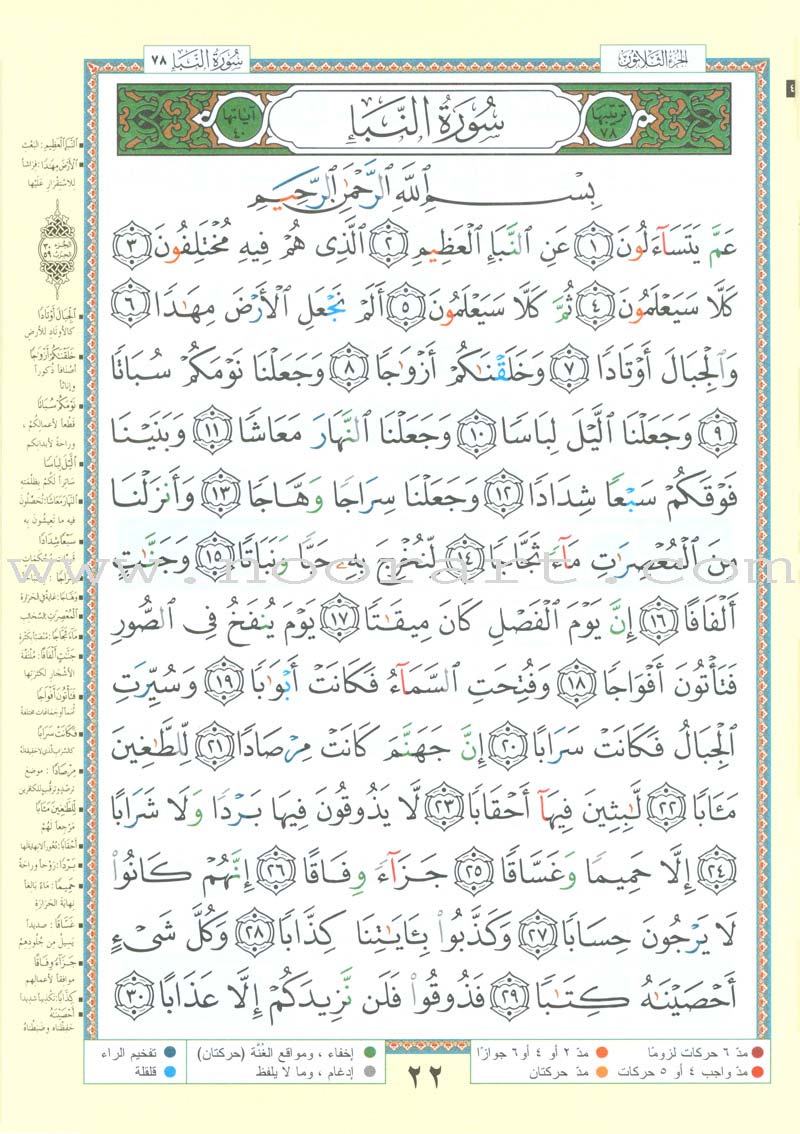 الجزء الثلاثون
سورة النبإ ٧٨
ترتيبها ٧٨
سُورَةُ النَّبَإِ
آياتها ٤٠
بِسْمِ ٱللَّهِ ٱلرَّحْمَٰنِ ٱلرَّحِيمِ
عَمَّ يَتَسَآءَلُونَ ١ عَنِ ٱلنَّبَإِ ٱلْعَظِيمِ ٢ ٱلَّذِى هُمْ فِيهِ مُخْتَلِفُونَ ٣
كَلَّا سَيَعْلَمُونَ ٤ ثُمَّ كَلَّا سَيَعْلَمُونَ ٥ أَلَمْ نَجْعَلِ ٱلْأَرْضَ مِهَٰدًا ٦
وَٱلْجِبَالَ أَوْتَادًا ٧ وَخَلَقْنَٰكُمْ أَزْوَٰجًا ٨ وَجَعَلْنَا نَوْمَكُمْ سُبَاتًا
٩ وَجَعَلْنَا ٱلَّيْلَ لِبَاسًا ١٠ وَجَعَلْنَا ٱلنَّهَارَ مَعَاشًا ١١ وَبَنَيْنَا
فَوْقَكُمْ سَبْعًا شِدَادًا ١٢ وَجَعَلْنَا سِرَاجًا وَهَّاجًا ١٣ وَأَنزَلْنَا
مِنَ ٱلْمُعْصِرَٰتِ مَآءً ثَجَّاجًا ١٤ لِّنُخْرِجَ بِهِۦ حَبًّا وَنَبَاتًا ١٥ وَجَنَّٰتٍ
أَلْفَافًا ١٦ إِنَّ يَوْمَ ٱلْفَصْلِ كَانَ مِيقَٰتًا ١٧ يَوْمَ يُنفَخُ فِى ٱلصُّورِ
فَتَأْتُونَ أَفْوَاجًا ١٨ وَفُتِحَتِ ٱلسَّمَآءُ فَكَانَتْ أَبْوَٰبًا ١٩ وَسُيِّرَتِ
ٱلْجِبَالُ فَكَانَتْ سَرَابًا ٢٠ إِنَّ جَهَنَّمَ كَانَتْ مِرْصَادًا ٢١ لِّلطَّٰغِينَ
مَـَٔابًا ٢٢ لَّٰبِثِينَ فِيهَآ أَحْقَابًا ٢٣ لَّا يَذُوقُونَ فِيهَا بَرْدًا وَلَا شَرَابًا
٢٤ إِلَّا حَمِيمًا وَغَسَّاقًا ٢٥ جَزَآءً وِفَاقًا ٢٦ إِنَّهُمْ كَانُوا۟
لَا يَرْجُونَ حِسَابًا ٢٧ وَكَذَّبُوا۟ بِـَٔايَٰتِنَا كِذَّابًا ٢٨ وَكُلَّ شَىْءٍ
أَحْصَيْنَٰهُ كِتَٰبًا ٢٩ فَذُوقُوا۟ فَلَن نَّزِيدَكُمْ إِلَّا عَذَابًا ٣٠
www.noorart.com
النبإ العظيم: البعث
الأرض مهادا: فراشا
للاستقرار عليها
الجزء ٣٠
الحزب ٥٩
الجبال أوتادا
كالأوتاد للأرض
خلقناكم أزواجا
أصنافا ذكورا
وإناثا
نومكم سباتا
قطعا لأعمالكم،
وراحة لأبدانكم
الليل لباسا
ساترا لكم بظلمته
النهار معاشا: تحصلون
فيه ما تعيشون به
سبعا شدادا
المعصرات: السحائب
جنات ألفافا: ملتفة
الأشجار لكثرتها
فتأتون أفواجا
فكانت سرابا
مرصادا: موضع
للطاغين مآبا
مرجعا لهم
بردا: روحا وراحة
حميما: ماء بالغا
نهاية الحرارة
غساقا: صديدا
يسيل من جلودهم
جزاء وفاقا
موافقا لأعمالهم
كذابا: تكذيبا شديدا
أحصيناه
حفظناه وضبطناه
مدّ ٦ حركات لزومًا
مدّ ٢ أو ٤ أو ٦ جوازًا
إخفاء ، ومواقع الغُنَّة (حركتان)
تفخيم الراء
مدّ واجب ٤ أو ٥ حركات
مدّ حركتان
إدغام ، وما لا يلفظ
قلقلة
٢٢